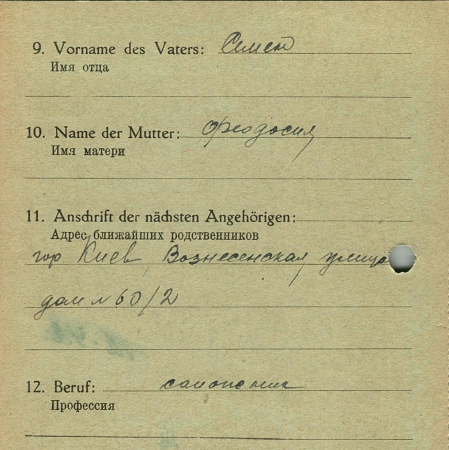 9. Vorname des Vaters: Семен
Имя отца
10. Name der Mutter: Феодосия
Имя матери
11. Anschrift der nächsten Angehörigen:
Адрес ближайших родственников
гор Киев, Вознесенская улица
дом № 60/2
12. Beruf: сапожник
Профессия